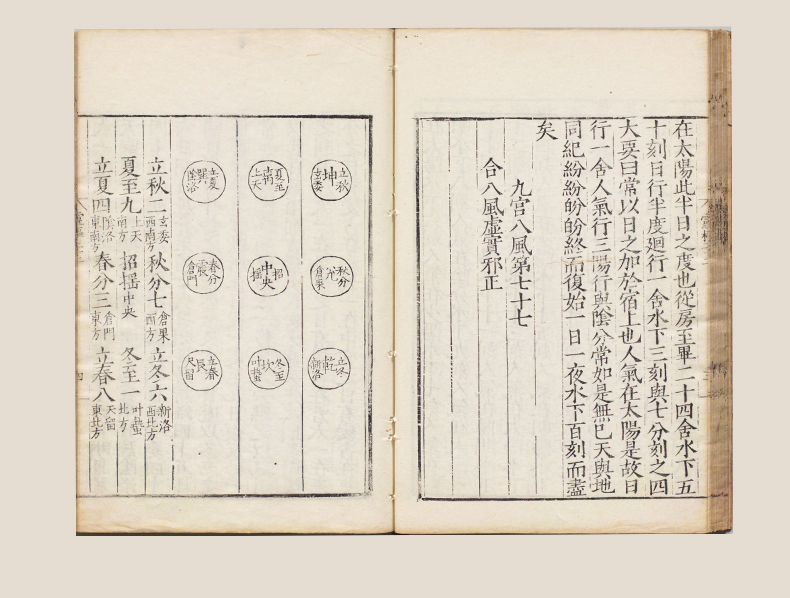 在太陽此半日之度也從房至畢二十四舍水下五
十刻日行半度廻行一舍水下三刻與七分刻之四
大要曰常以日之加於宿上也人氣在太陽是故日
行一舍人氣行三陽行與陰分常如是無已天與地
同紀紛紛𦭘𦭘終而復始一日一夜水下百刻而盡
矣
九宮八風第七十七
合八風虛實邪正
立秋 坤 玄委
秋分 兊 倉果
立冬 乾 新洛
夏至 离 上天
招 中央 搖
冬至 坎 叶蟄
立夏 巽 陰洛
春分 震 倉門
立春 艮 天留
立秋二 玄委 西南方 秋分七 倉果 西方 立冬六 新洛 西北方
夏至九 上天 南方 招搖 中央 冬至一 叶蟄 北方
立夏四 陰洛 東南方 春分三 倉門 東方 立春八 天留 東北方